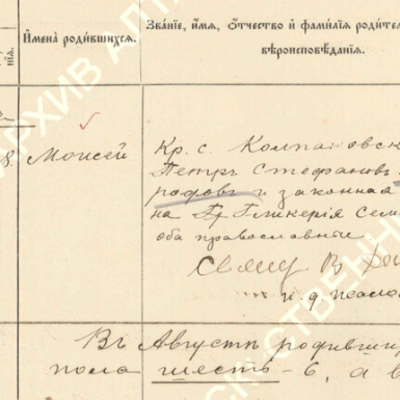 Имена родившихся.
Званіе, имя, отчество и фамилія родите
вѣроисповѣданія.
нія.
8. Моисей
Кр. с. Колпаковск
Петръ Стефановъ
рафовъ и законная
на Гр. Гликерія Сем
оба православные
Свящ. В.
и. д. псало
Въ Августѣ родивши
пола шесть - 6, а в